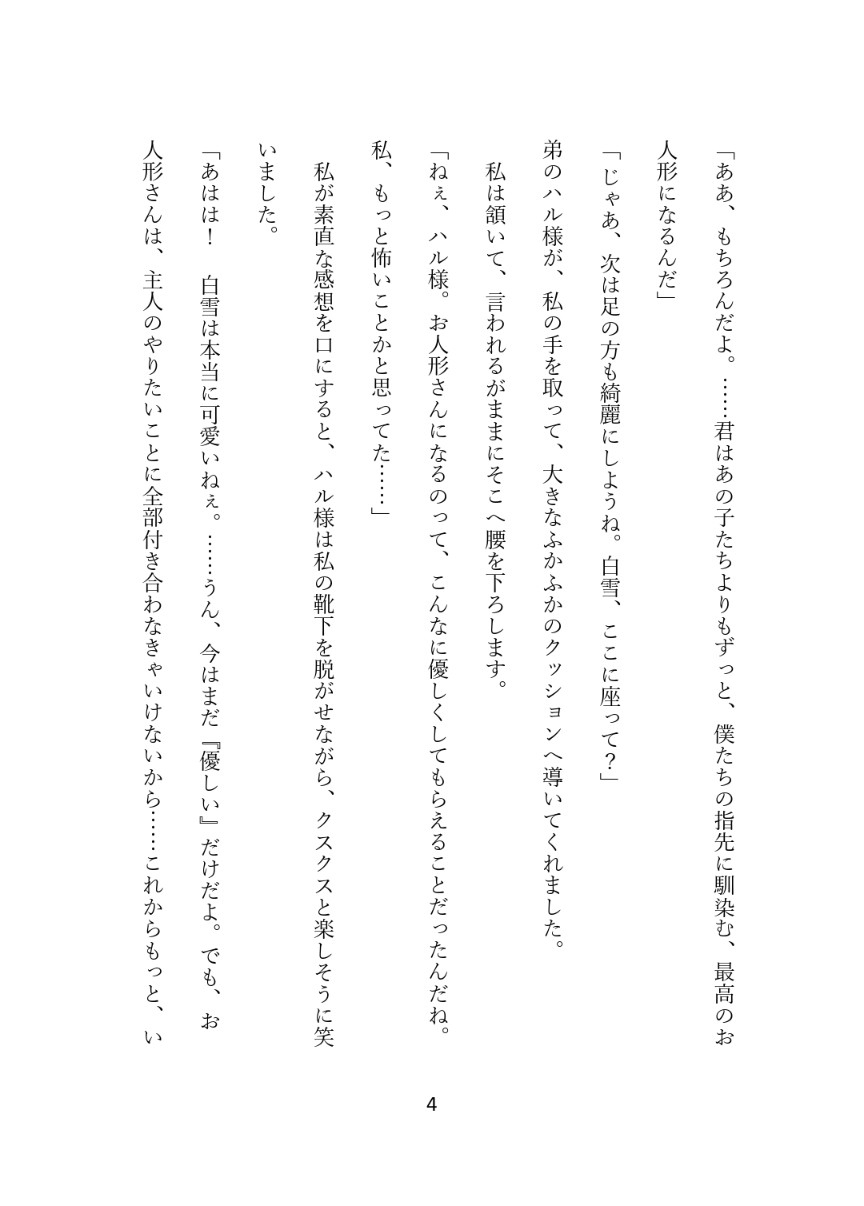 「ああ、もちろんだよ。……君はあの子たちよりもずっと、僕たちの指先に馴染む、最高のお
人形になるんだ」
「じゃあ、次は足の方も綺麗にしようね。白雪、ここに座って？」
弟のハル様が、私の手を取って、大きなふかふかのクッションへ導いてくれました。
　私は頷いて、言われるがままにそこへ腰を下ろします。
「ねぇ、ハル様。お人形さんになるのって、こんなに優しくしてもらえることだったんだね。
私、もっと怖いことかと思ってた……」
　私が素直な感想を口にすると、ハル様は私の靴下を脱がせながら、クスクスと楽しそうに笑
いました。
「あはは！　白雪は本当に可愛いねぇ。……うん、今はまだ『優しい』だけだよ。でも、お
人形さんは、主人のやりたいことに全部付き合わなきゃいけないから……これからもっと、い
4